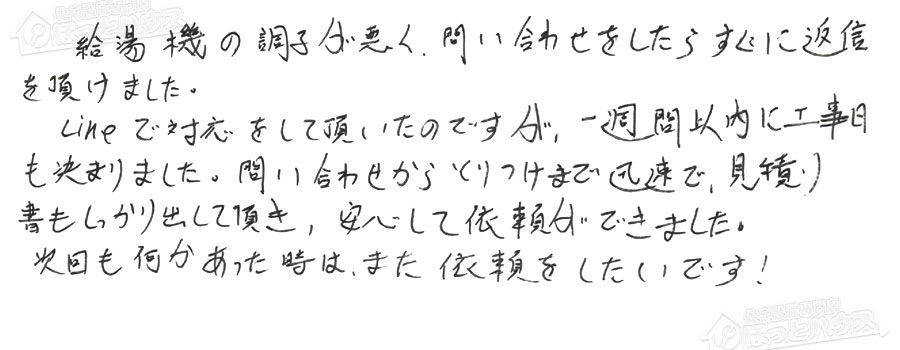 給湯機の調子が悪く、問い合わせをしたらすぐに返信
を頂けました。
Lineで対応をして頂いたのですが、一週間以内に工事日
も決まりました。問い合わせからとりつけまで迅速で、見積り
書もしっかり出して頂き、安心して依頼ができました。
次回も何かあった時は、また依頼をしたいです！
住宅設備専門店
ほっとハウス
住宅設備専門店
ほっとハウス